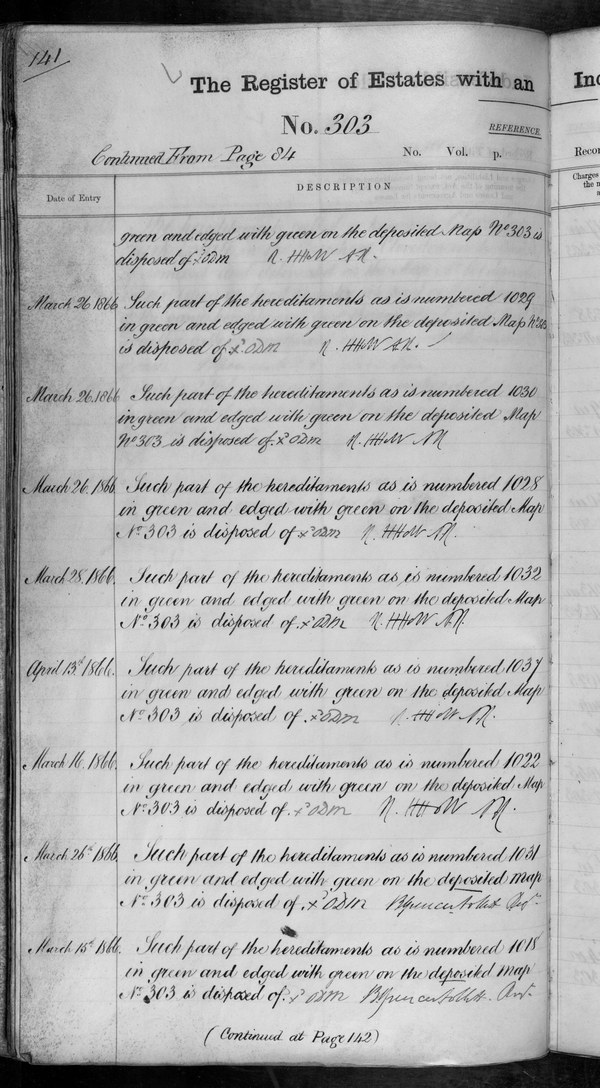 141
The Register of Estates with an
Ind
No. 303
REFERENCE.
Continued From Page 84
No. Vol. p.
Recor
Date of Entry
DESCRIPTION
Charges
the n
a
green and edged with green on the deposited Map No 303 is
disposed of
March 26 1866 Such part of the hereditaments as is numbered 1029
in green and edged with green on the deposited Map No 303
is disposed of
March 26. 1866 Such part of the hereditaments as is numbered 1030
in green and edged with green on the deposited Map
No 303 is disposed of
March 26. 1866. Such part of the hereditaments as is numbered 1028
in green and edged with green on the deposited Map
No 303 is disposed of
March 28. 1866. Such part of the hereditaments as is numbered 1032
in green and edged with green on the deposited Map
No 303 is disposed of
April 13th 1866. Such part of the hereditaments as is numbered 1037
in green and edged with green on the deposited Map
No 303 is disposed of
March 16. 1866. Such part of the hereditaments as is numbered 1022
in green and edged with green on the deposited Map
No 303 is disposed of
March 26th 1866. Such part of the hereditaments as is numbered 1031
in green and edged with green on the deposited map
No 303 is disposed of
March 15th 1866. Such part of the hereditaments as is numbered 1018
in green and edged with green on the deposited map
No 303 is disposed of
(Continued at Page 142)